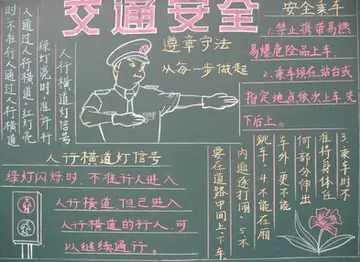 交通安全
人行横道灯信号
绿灯亮时,准许行
人通过人行横道。红灯亮
时,不准行人通过人行横道
遵章守法
从每一步做起
安全乘车
1.禁止携带易燃
易爆危险品上车
2.乘车须在站台或
指定地点依次上车先
下后上。
3.乘车不
准将身体任
何部分伸出
车外,更不能
跳车,4.不能在厢
内追逐打闹。5.不
要在道路中间上、下车。
人行横道灯信号
绿灯闪烁时,不准行人进入
人行横道,但已进入
人行横道的行人,可
以继续通行。